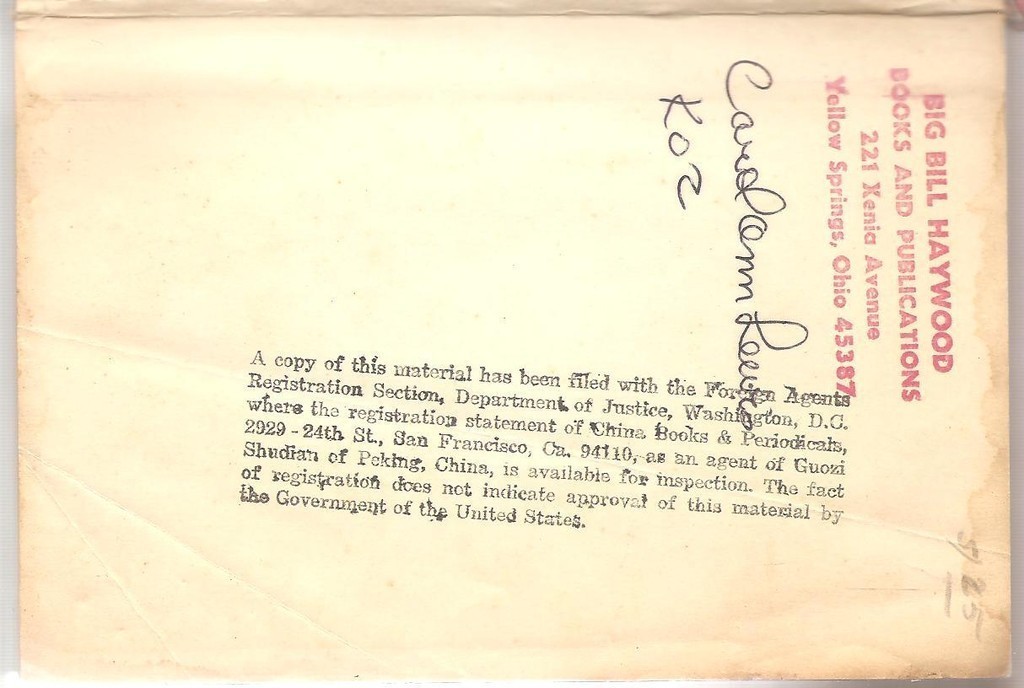 BIG BILL HAYWOOD
BOOKS AND PUBLICATIONS
221 Xenia Avenue
Yellow Springs, Ohio 45387
Carol Ann Lewis
KOZ
A copy of this material has been filed with the Foreign Agents
Registration Section, Department of Justice, Washington, D.C.
where the registration statement of China Books & Periodicals,
2929 - 24th St., San Francisco, Ca. 94110, as an agent of Guozi
Shudian of Peking, China, is available for inspection. The fact
of registration does not indicate approval of this material by
the Government of the United States.